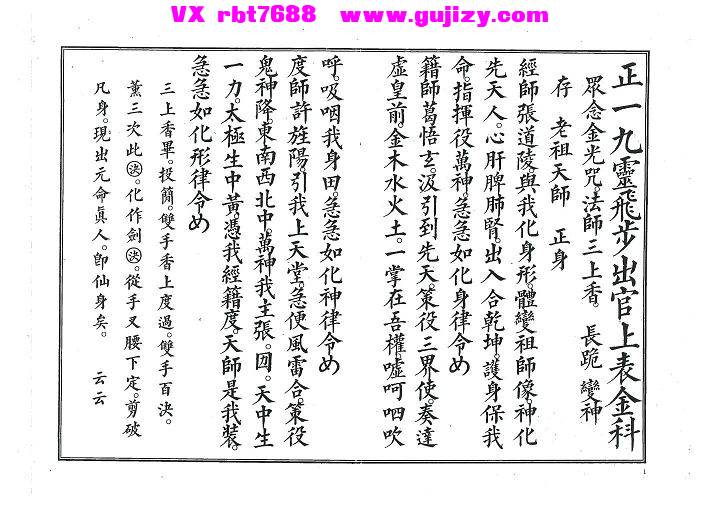 VX rbt7688 www.gujizy.com
正一九靈飛步出官上表金科
眾念金光咒。法師三上香。長跪 變神
存 老祖天師 正身
經師張道陵。與我化身形。體變祖師像。神化
先天人。心肝脾肺腎。出入合乾坤。護身保我
命。指揮役萬神。急急如化身律令
籍師葛悟玄。汲引到先天。策役三界使。奏達
虛皇前。金木水火土。一掌在吾權。噓呵呬吹
呼。吸咽我身田。急急如化神律令
度師許旌陽。引我上天堂。急便風雷合。策役
鬼神降。東南西北中。萬神我主張。囸。天中生
一力。太極生中黃。憑我經籍度。天師是我裝。
急急如化形律令
三上香畢。投簡。雙手香上度過。雙手百決。
薰三次此決。化作劍決。從手叉腰下定。剪破
凡身。現出元命真人。即仙身矣。 云云